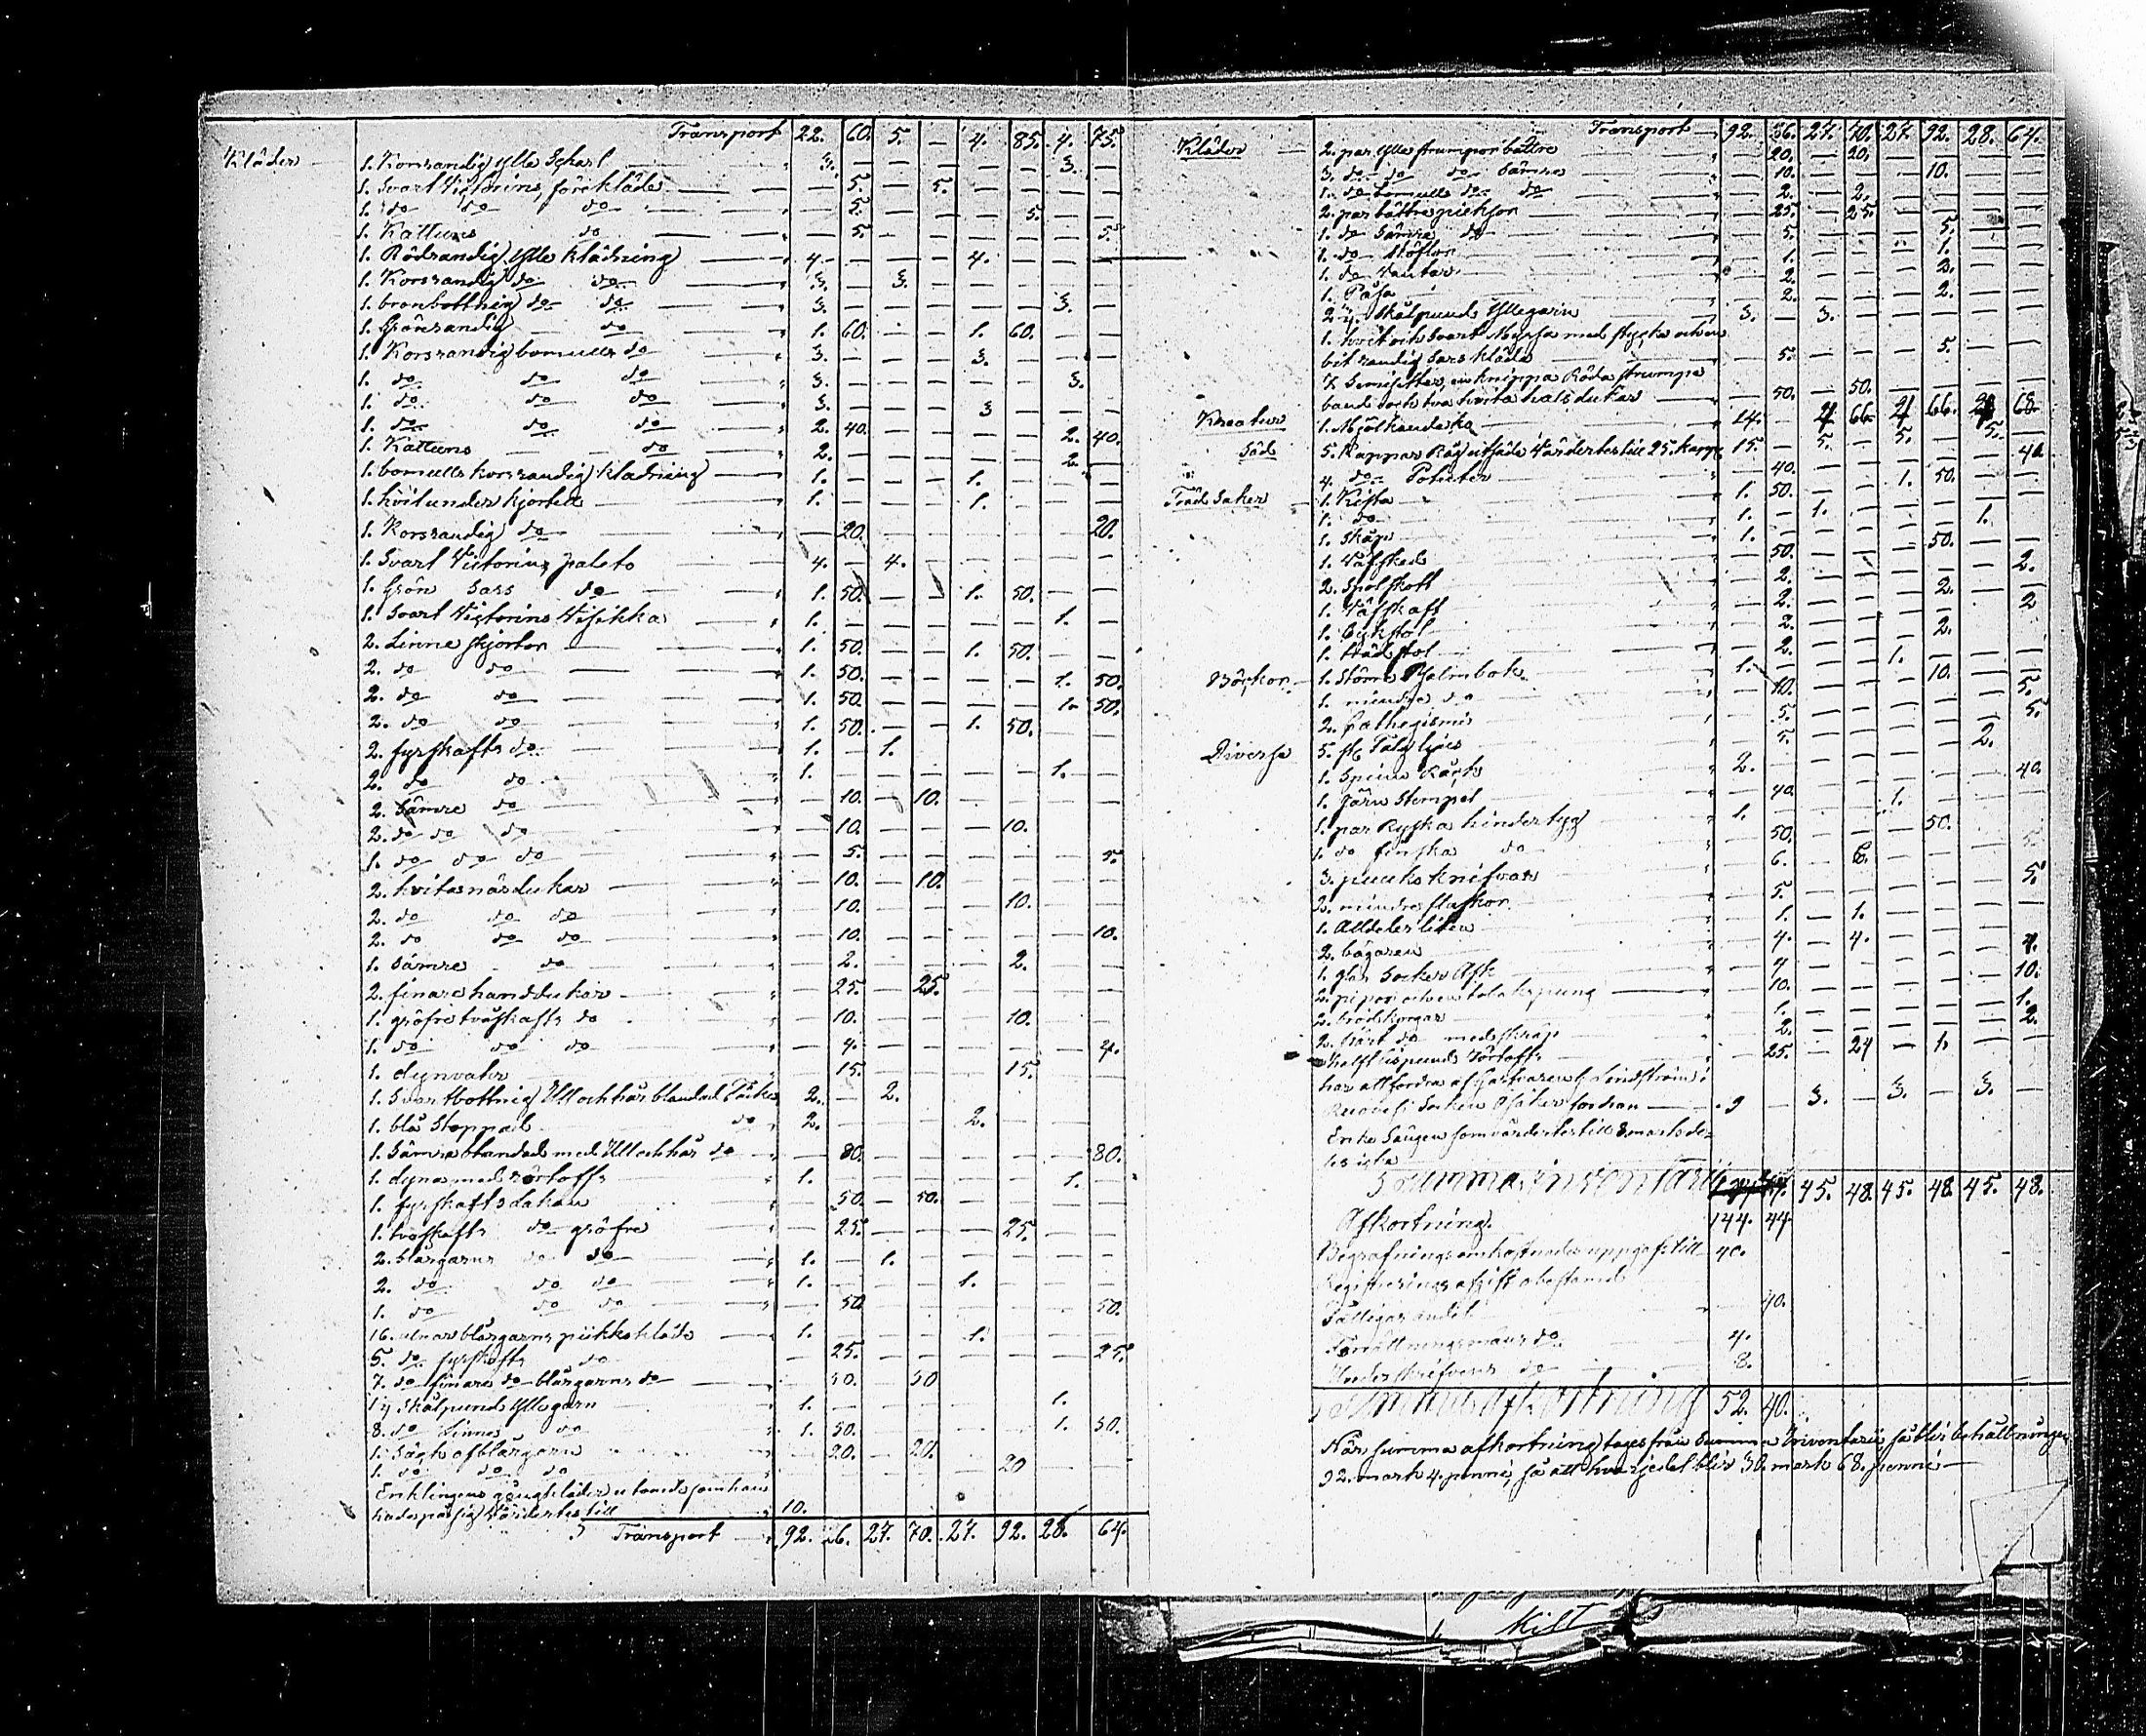 Transport 22. 60. 5. — 4. 85. 4. 75.
Kläder 1. Korsrandig Ylle Scharl 3. — — — — — 3. —
1. Svart Victorins, förekläde — 5. — 5. — — — —
1. do do do — 5. — — — 5. — —
1. Kattuns do — 5. — — — — — 5.
1. Rödrandig Ylle Klädning 4. — — — 4. — — —
1. Korsrandig do do 3. — 3. — — — — —
1. brunbottnig do do 3. — — — — — 3. —
1. Grönrandig do 1. 60. — — 1. 60. — —
1. Korsrandig bomulls do 3. — — — 3. — — —
1. do do do 3. — — — — — 3. —
1. do do do 3. — — — 3 — — —
1. do do do 2. 40. — — — — 2. 40.
1. Kattuns do 2. — — — — — 2. —
1. bomulls korsrandig Klädning 1. — — — 1. — — —
1. hvit underkjortel 1. — — — 1. — — —
1. Korsrandig do — 20. — — — — — 20.
1. Svart Victorins paleto 4. — 4. — — — — —
1. Grön Sars do 1. 50. — — 1. 50. — —
1. Svart Victorins Visikka 1. — — — — — 1. —
2. Linne skjortor 1. 50. — — 1. 50. — —
2. do do 1. 50. — — — — 1. 50.
2. do do 1. 50. — — — — 1. 50.
2. do do 1. 50. — — 1. 50. — —
2. fyrskafts do 1. — 1. — — — — —
2. do do 1. — — — — — 1. —
2. Sämre do — 10. — 10. — — — —
2. do do do — 10. — — — 10. — —
1. do do do — 5. — — — — — 5.
2. hvita näsdukar — 10. — 10. — — — —
2. do do do — 10. — — — 10. — —
2. do do do — 10. — — — — — 10.
1. Sämre do — 2. — — — 2. — —
2. finare handdukar — 25. — 25. — — — —
1. gröfre tvåskafts do — 10. — — — 10. — —
1. do do do — 4. — — — — — 4.
1. dynvahr — 15. — — — 15. — —
1. Svartbottnig Ull och hår blandad Täcke 2. — 2. — — — — —
1. blå Stoppad do 2. — — — 2. — — —
1. Sämre blandad med Ull och hår do — 80. — — — — — 80.
1. dyna med rörtofs 1. — — — — — 1. —
1. fyrskafts lakan — 50. — 50. — — — —
1. tvåskafts do gröfre — 25. — — — 25. — —
2. blårgarns do do 1. — 1. — — — — —
2. do do do 1. — — — 1. — — —
1. do do do — 50 — — — — — 50.
16. alnar blårgarns piikkokläde 1. — — — 1. — — —
5. do fyrskafts do — 25. — — — — — 25.
7. do finare do blårgarns do — 50. — 50 — — — —
1½ Skålpund Yllegarn 1. — — — — — 1. —
8. do Linne do 1. 50. — — — — 1. 50.
1. Säck af blårgarn — 20. — 20. — — — —
1. do do do — — — — — 20 — —
Enklingens gångkläder utom de som han
hade på sig Värdertes till 10.
Transport 92. 56. 27. 70. 27. 92. 28. 64.
Transport 92. 56. 27. 70. 27. 92. 28. 64.
Kläder 2. par Ylle strumpor bättre — 20. — 20. — — — —
3. do do do Sämre — 10. — — — 10. — —
1. do Bomulls do do — 2. — 2. — — — —
2. par bättre pieksor — 25. — 25. — — — —
1. do Sämre do — 5. — — — 5. — —
1. do Stöflor — 1. — — — 1. — —
1. do Vantar — 2. — — — 2. — —
1. Påsa — 2. — — — 2. — —
2½ Skålpund Yllegarn 3. — 3. — — — — —
1. hvit och Svart Myssa med stycke och en
bit randig Sars kläde — 5. — — — 5. — —
7. Semisetter, en knippa Röda strumpe
band och två hvita halsdukar — 50. — 50. — — — —
Kreatur 1. Mjölkande ko 14. — 4. 66. 4. 66. 4. 68.
Säd 5. Kappar Råg utsäde Värdertes till 25. kappe 15. — 5. — 5. — 5. —
4. do Potäter — 40. — — — — — 40.
Träd Saker 1. Kista 1. 50. — — 1. 50. — —
1. do 1. — 1. — — — — —
1. Skåp 1. — — — — — 1. —
1. Väfsked — 50. — — — 50. — —
2. Spolskott — 2. — — — — — 2.
1. Väfskaft — 2. — — — 2. — —
1. Bykstol — 2. — — — — — 2
1. trädstol — 2. — — — 2. — —
Böcker 1. Större Psalmbok 1. — — — 1. — — —
1. mindre do — 10. — — — 10. — —
2. Cathegismi — 5. — — — — — 5.
Diverse 5. st. Talg ljus — 5. — — — — — 5.
1. Spinn Råck 2. — — — — — 2. —
1. Järn Stempel — 40. — — — — — 40.
1. par Ryska hindertyg 1. — — — 1. — — —
1. do finska do — 50. — — — 50. — —
3. puuko knifvar — 6. — 6. — — — —
2. mindre flaskor — 5. — — — — — 5.
1. Alldeles liten — 1. — 1. — — — —
2. bägaren — 4. — 4. — — — —
1. glas Socker Ask — 4 — — — — — 4.
2. pipor och en tobakspung — 10. — — — — — 10.
2. brödkorgar — 1. — — — — — 1.
2. do med skräp — 2. — — — — — 2.
Ett halft lispund Rörtofs — 25. — 24 — 1. — —
har att fordra af Lindström i
Socken 9 — 3. — 3. — 3. —
Enke Sängen som värdertes till 8 mark
Summa Inventarii 45. 48. 45. 48. 45. 48.
Afkortning. 144. 44.
Begrafningsomkostnader uppgafs till 40.
Registreringsafgift obestämd
Fattigas andel — 40.
Förrättningsmans do 4.
Underskrifvares do 8.
Summa Afkortning 52. 40.
När summa afkortning tages från Summa Inventarii så blir behållningen
92. mark 4. penni, så att hvarje del blir 30. mark 68. penni